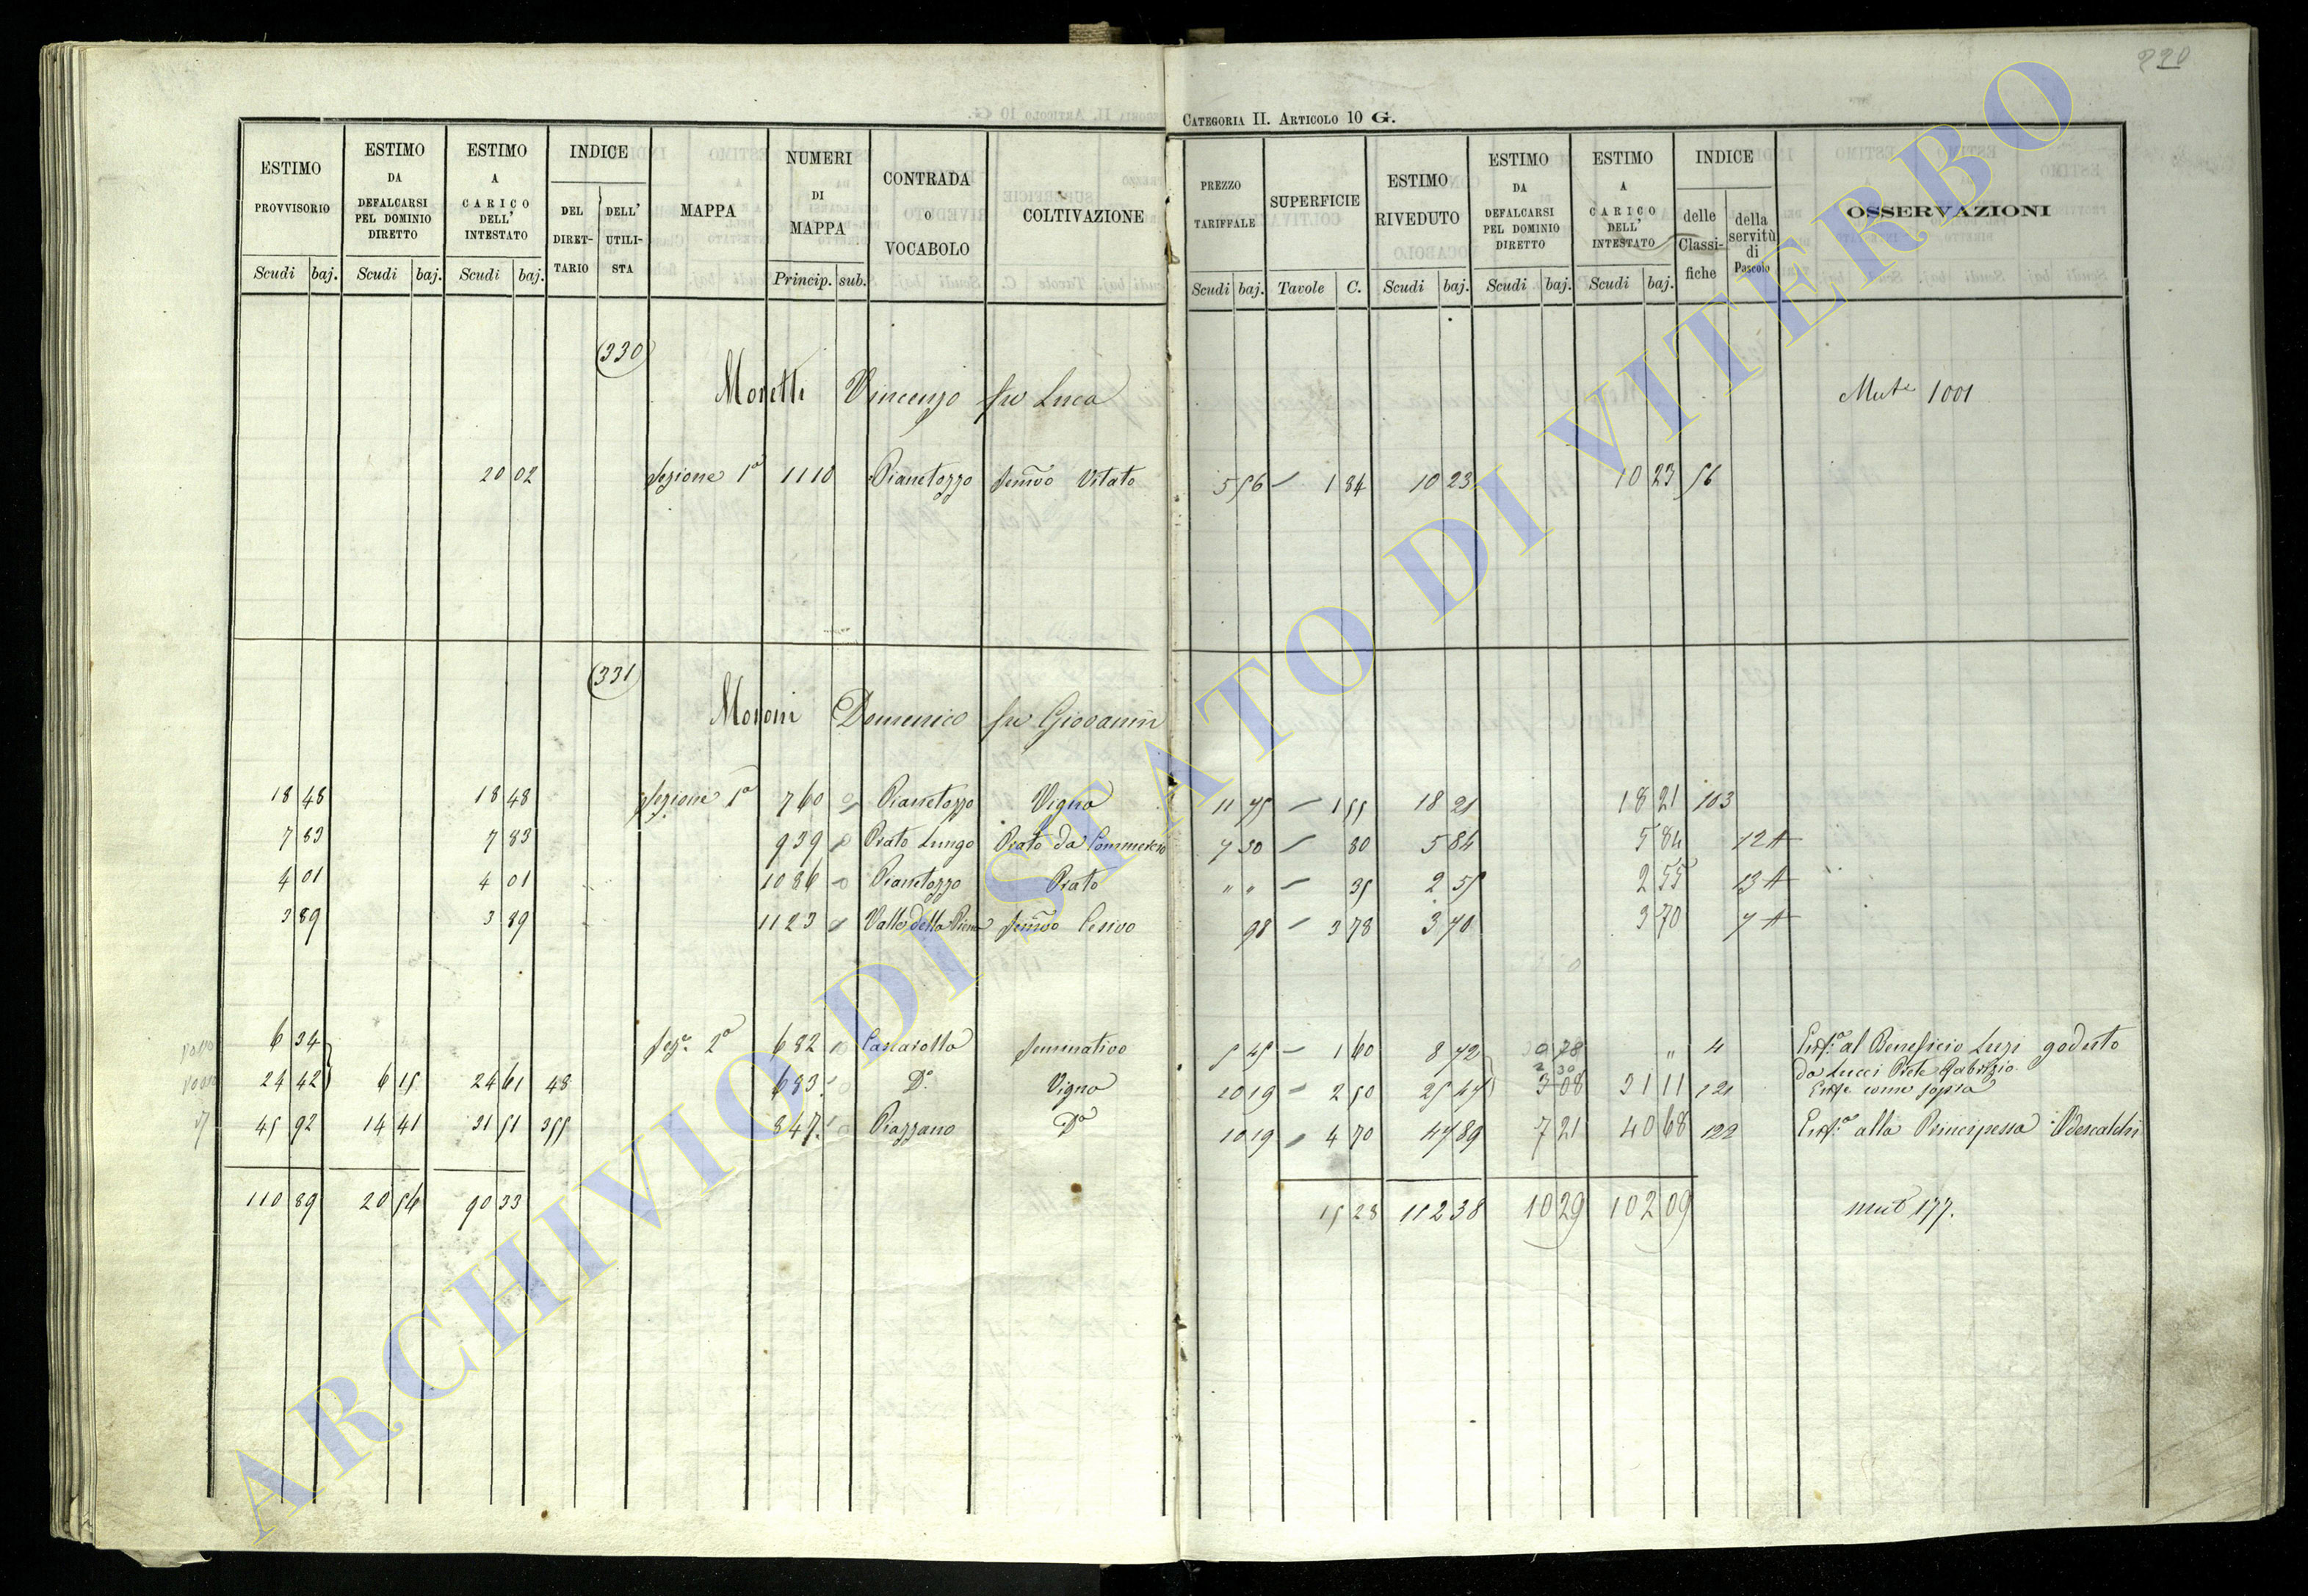 220
CATEGORIA II. ARTICOLO 10 G.
ESTIMO PROVVISORIO Scudi baj.
ESTIMO DA DEFALCARSI PEL DOMINIO DIRETTO Scudi baj.
ESTIMO A CARICO DELL' INTESTATO Scudi baj.
INDICE DEL DIRETTARIO DELL' UTILISTA
MAPPA
NUMERI DI MAPPA Princip. sub.
CONTRADA O VOCABOLO
COLTIVAZIONE
PREZZO TARIFFALE Scudi baj.
SUPERFICIE Tavole C.
ESTIMO RIVEDUTO Scudi baj.
ESTIMO DA DEFALCARSI PEL DOMINIO DIRETTO Scudi baj.
ESTIMO A CARICO DELL' INTESTATO Scudi baj.
INDICE delle Classifiche della servitù di Pascolo
OSSERVAZIONI
(330)
Moretti Vincenzo fu Luca Muta 1001
20 02 Sezione 1a 1110 Pianetozzo Semivo Vitato 5 56 – 1 84 10 23 10 23 56
(331)
Moroni Domenico fu Giovanni
18 48 18 48 Sezione 1a 760 Pianetozzo Vigna 11 75 – 1 55 18 21 18 21 103
7 83 7 83 939 Prato Lungo Prato da Commercio 7 30 – 80 5 84 5 84 12 A
4 01 4 01 1086 Pianetozzo Prato " " – 35 2 55 2 55 13 A
3 89 3 89 1123 Valle della Piena Semivo Cesivo 98 – 3 78 3 70 3 70 7 A
6 34 Seze 2a 682 Casarolla Seminativo 5 45 – 1 60 8 72 " 4 Enfa al Beneficio Luzi goduto
da Lucci Prete Gabrizio
24 42 6 15 24 61 48 683 Do Vigna 10 19 – 2 50 25 47 3 08 31 11 121 Enfa come sopra
45 92 14 41 31 51 355 847 Piazzano Da 10 19 – 4 70 47 89 7 21 40 68 122 Enfa alla Principessa Odescalchi
110 89 20 56 90 33 15 28 112 38 10 29 102 09 mut 177.
ARCHIVIO DI STATO DI VITERBO